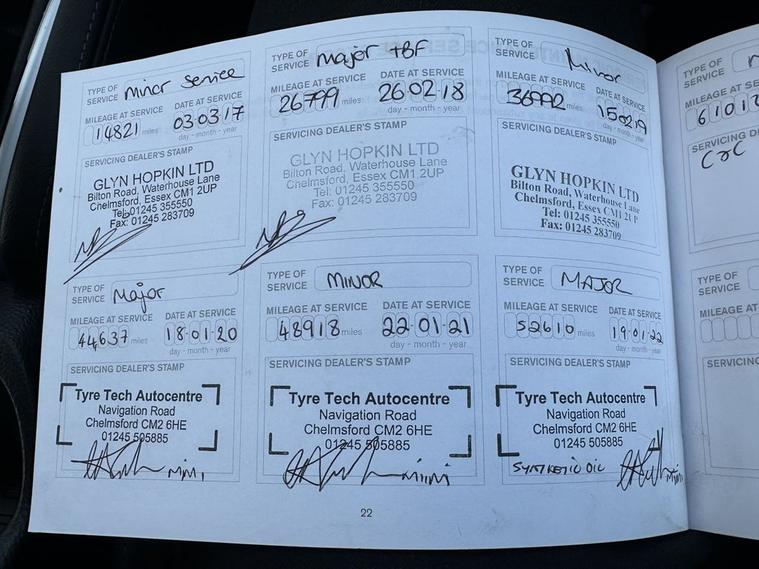 TYPE OF SERVICE Minor Service
MILEAGE AT SERVICE DATE AT SERVICE
14821 miles 03 03 17
day - month - year
SERVICING DEALER'S STAMP
GLYN HOPKIN LTD
Bilton Road, Waterhouse Lane
Chelmsford, Essex CM1 2UP
Tel: 01245 355550
Fax: 01245 283709
TYPE OF SERVICE Major + BF
MILEAGE AT SERVICE DATE AT SERVICE
26799 miles 26 02 18
day - month - year
SERVICING DEALER'S STAMP
GLYN HOPKIN LTD
Bilton Road, Waterhouse Lane
Chelmsford, Essex CM1 2UP
Tel: 01245 355550
Fax: 01245 283709
TYPE OF SERVICE Minor
MILEAGE AT SERVICE DATE AT SERVICE
36992 miles 15 02 19
day - month - year
SERVICING DEALER'S STAMP
GLYN HOPKIN LTD
Bilton Road, Waterhouse Lane
Chelmsford, Essex CM1 2UP
Tel: 01245 355550
Fax: 01245 283709
TYPE OF SERVICE Major
MILEAGE AT SERVICE DATE AT SERVICE
44,637 miles 18-01-20
day - month - year
SERVICING DEALER'S STAMP
Tyre Tech Autocentre
Navigation Road
Chelmsford CM2 6HE
01245 505885
TYPE OF SERVICE MINOR
MILEAGE AT SERVICE DATE AT SERVICE
48918 miles 22-01-21
day - month - year
SERVICING DEALER'S STAMP
Tyre Tech Autocentre
Navigation Road
Chelmsford CM2 6HE
01245 505885
TYPE OF SERVICE MAJOR
MILEAGE AT SERVICE DATE AT SERVICE
52610 miles 19-01-22
day - month - year
SERVICING DEALER'S STAMP
Tyre Tech Autocentre
Navigation Road
Chelmsford CM2 6HE
01245 505885
SYNTHETIC OIL
22
TYPE OF SERVICE
MILEAGE AT
6101
SERVICING
TYPE OF SERVICE
MILEAGE AT SE
SERVICING